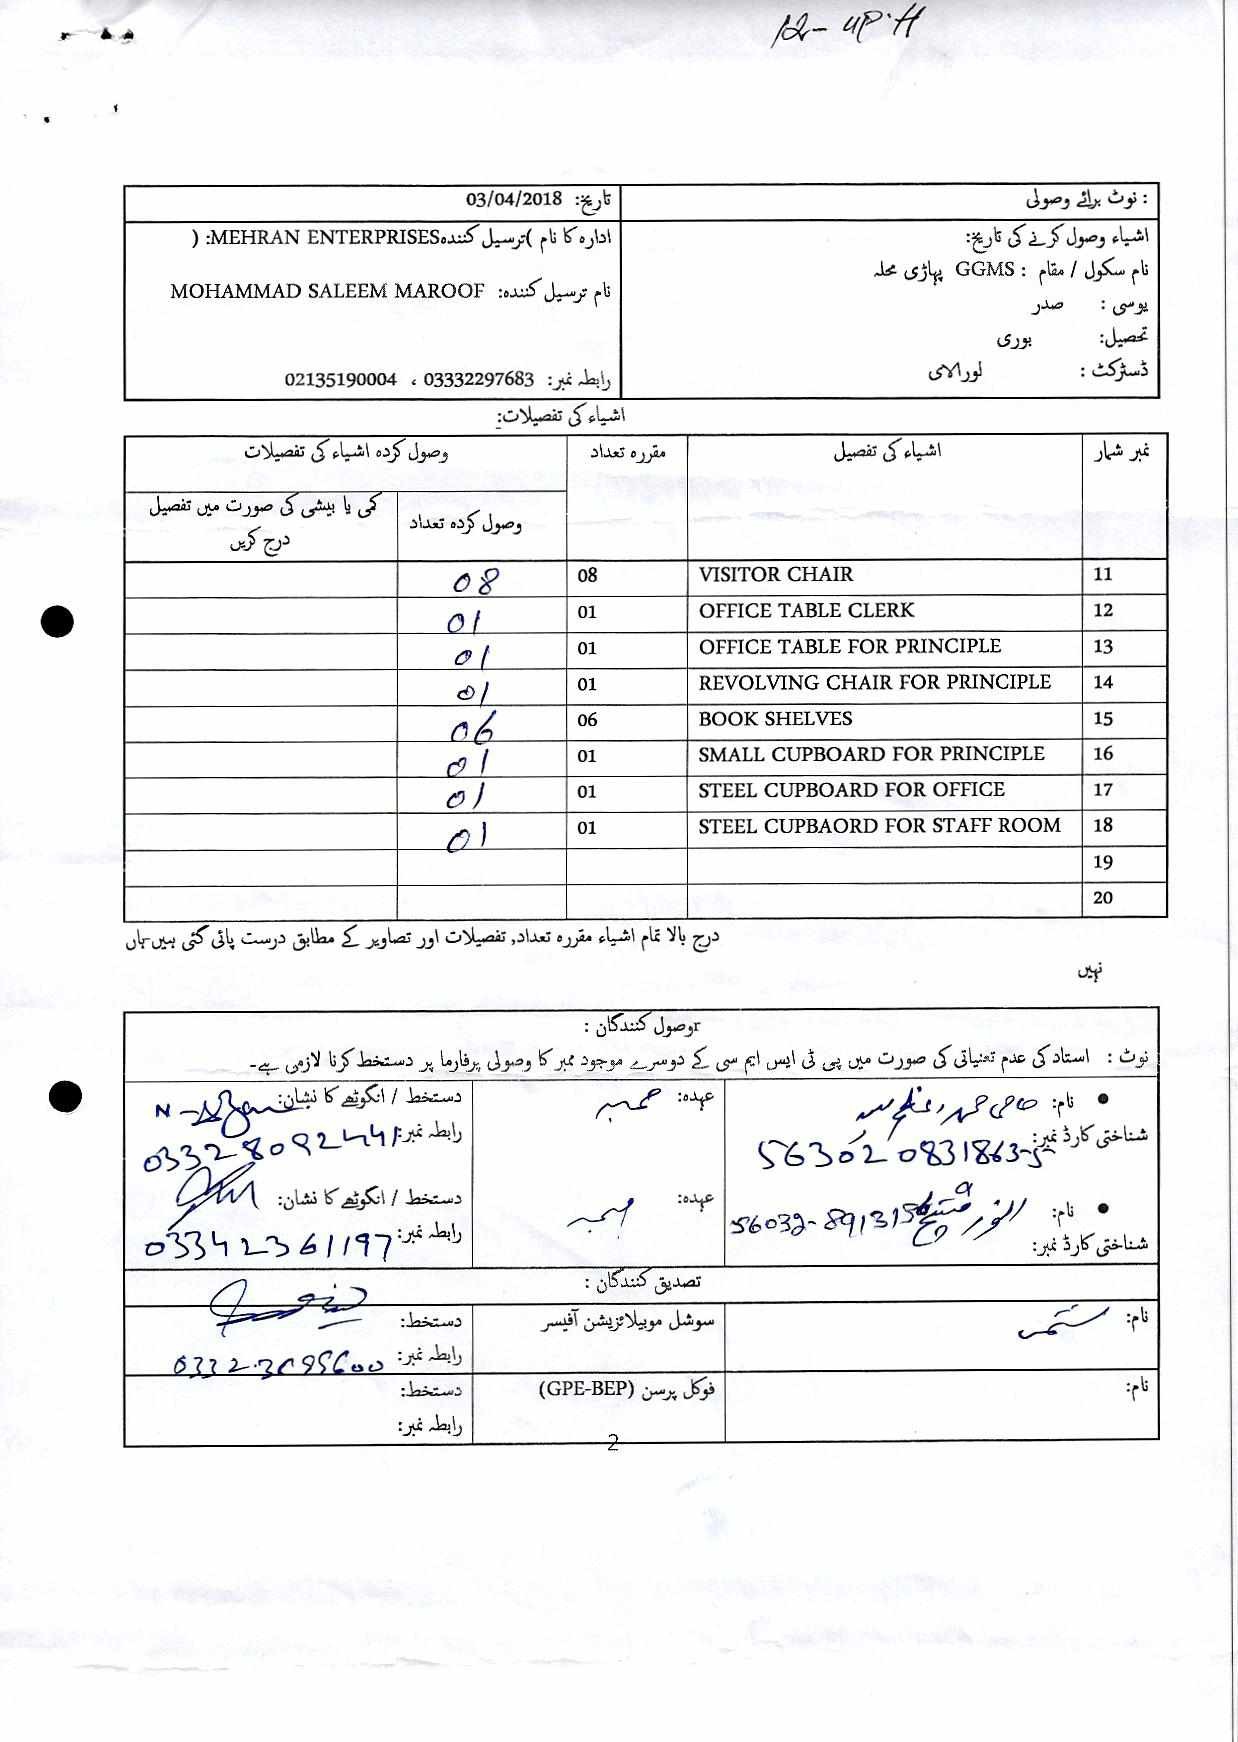 نوٹ برائے وصولی :
تاریخ: 03/04/2018
اشیاء وصول کرنے کی تاریخ:
نام سکول / مقام : GGMS پہاڑی محلہ
یوسی : صدر
تحصیل: بوری
ڈسٹرکٹ : لورالائی
ادارہ کا نام )ترسیل کنندہMEHRAN ENTERPRISES: (
نام ترسیل کنندہ: MOHAMMAD SALEEM MAROOF
رابطہ نمبر: 03332297683 ، 02135190004
اشیاء کی تفصیلات:
نمبر شمار اشیاء کی تفصیل مقررہ تعداد وصول کردہ اشیاء کی تفصیلات
وصول کردہ تعداد کمی یا بیشی کی صورت میں تفصیل
درج کریں
11 VISITOR CHAIR 08 08
12 OFFICE TABLE CLERK 01 01
13 OFFICE TABLE FOR PRINCIPLE 01 01
14 REVOLVING CHAIR FOR PRINCIPLE 01 01
15 BOOK SHELVES 06 06
16 SMALL CUPBOARD FOR PRINCIPLE 01 01
17 STEEL CUPBOARD FOR OFFICE 01 01
18 STEEL CUPBAORD FOR STAFF ROOM 01 01
19
20
درج بالا تمام اشیاء مقررہ تعداد, تفصیلات اور تصاویر کے مطابق درست پائی گئی ہیں-ہاں
نہیں
rوصول کنندگان :
نوٹ : استاد کی عدم تعنیاتی کی صورت میں پی ٹی ایس ایم سی کے دوسرے موجود ممبر کا وصولی پرفارما پر دستخط کرنا لازمی ہے-
• نام: عہدہ: ممبر دستخط / انگوٹھے کا نشان:
شناختی کارڈ نمبر: 56302 0831863-5 رابطہ نمبر: 03328092441
• نام: عہدہ: ممبر دستخط / انگوٹھے کا نشان:
شناختی کارڈ نمبر: رابطہ نمبر: 03342361197
تصدیق کنندگان :
نام: سوشل موبیلائزیشن آفیسر دستخط:
رابطہ نمبر:
نام: فوکل پرسن (GPE-BEP) دستخط:
رابطہ نمبر:
2